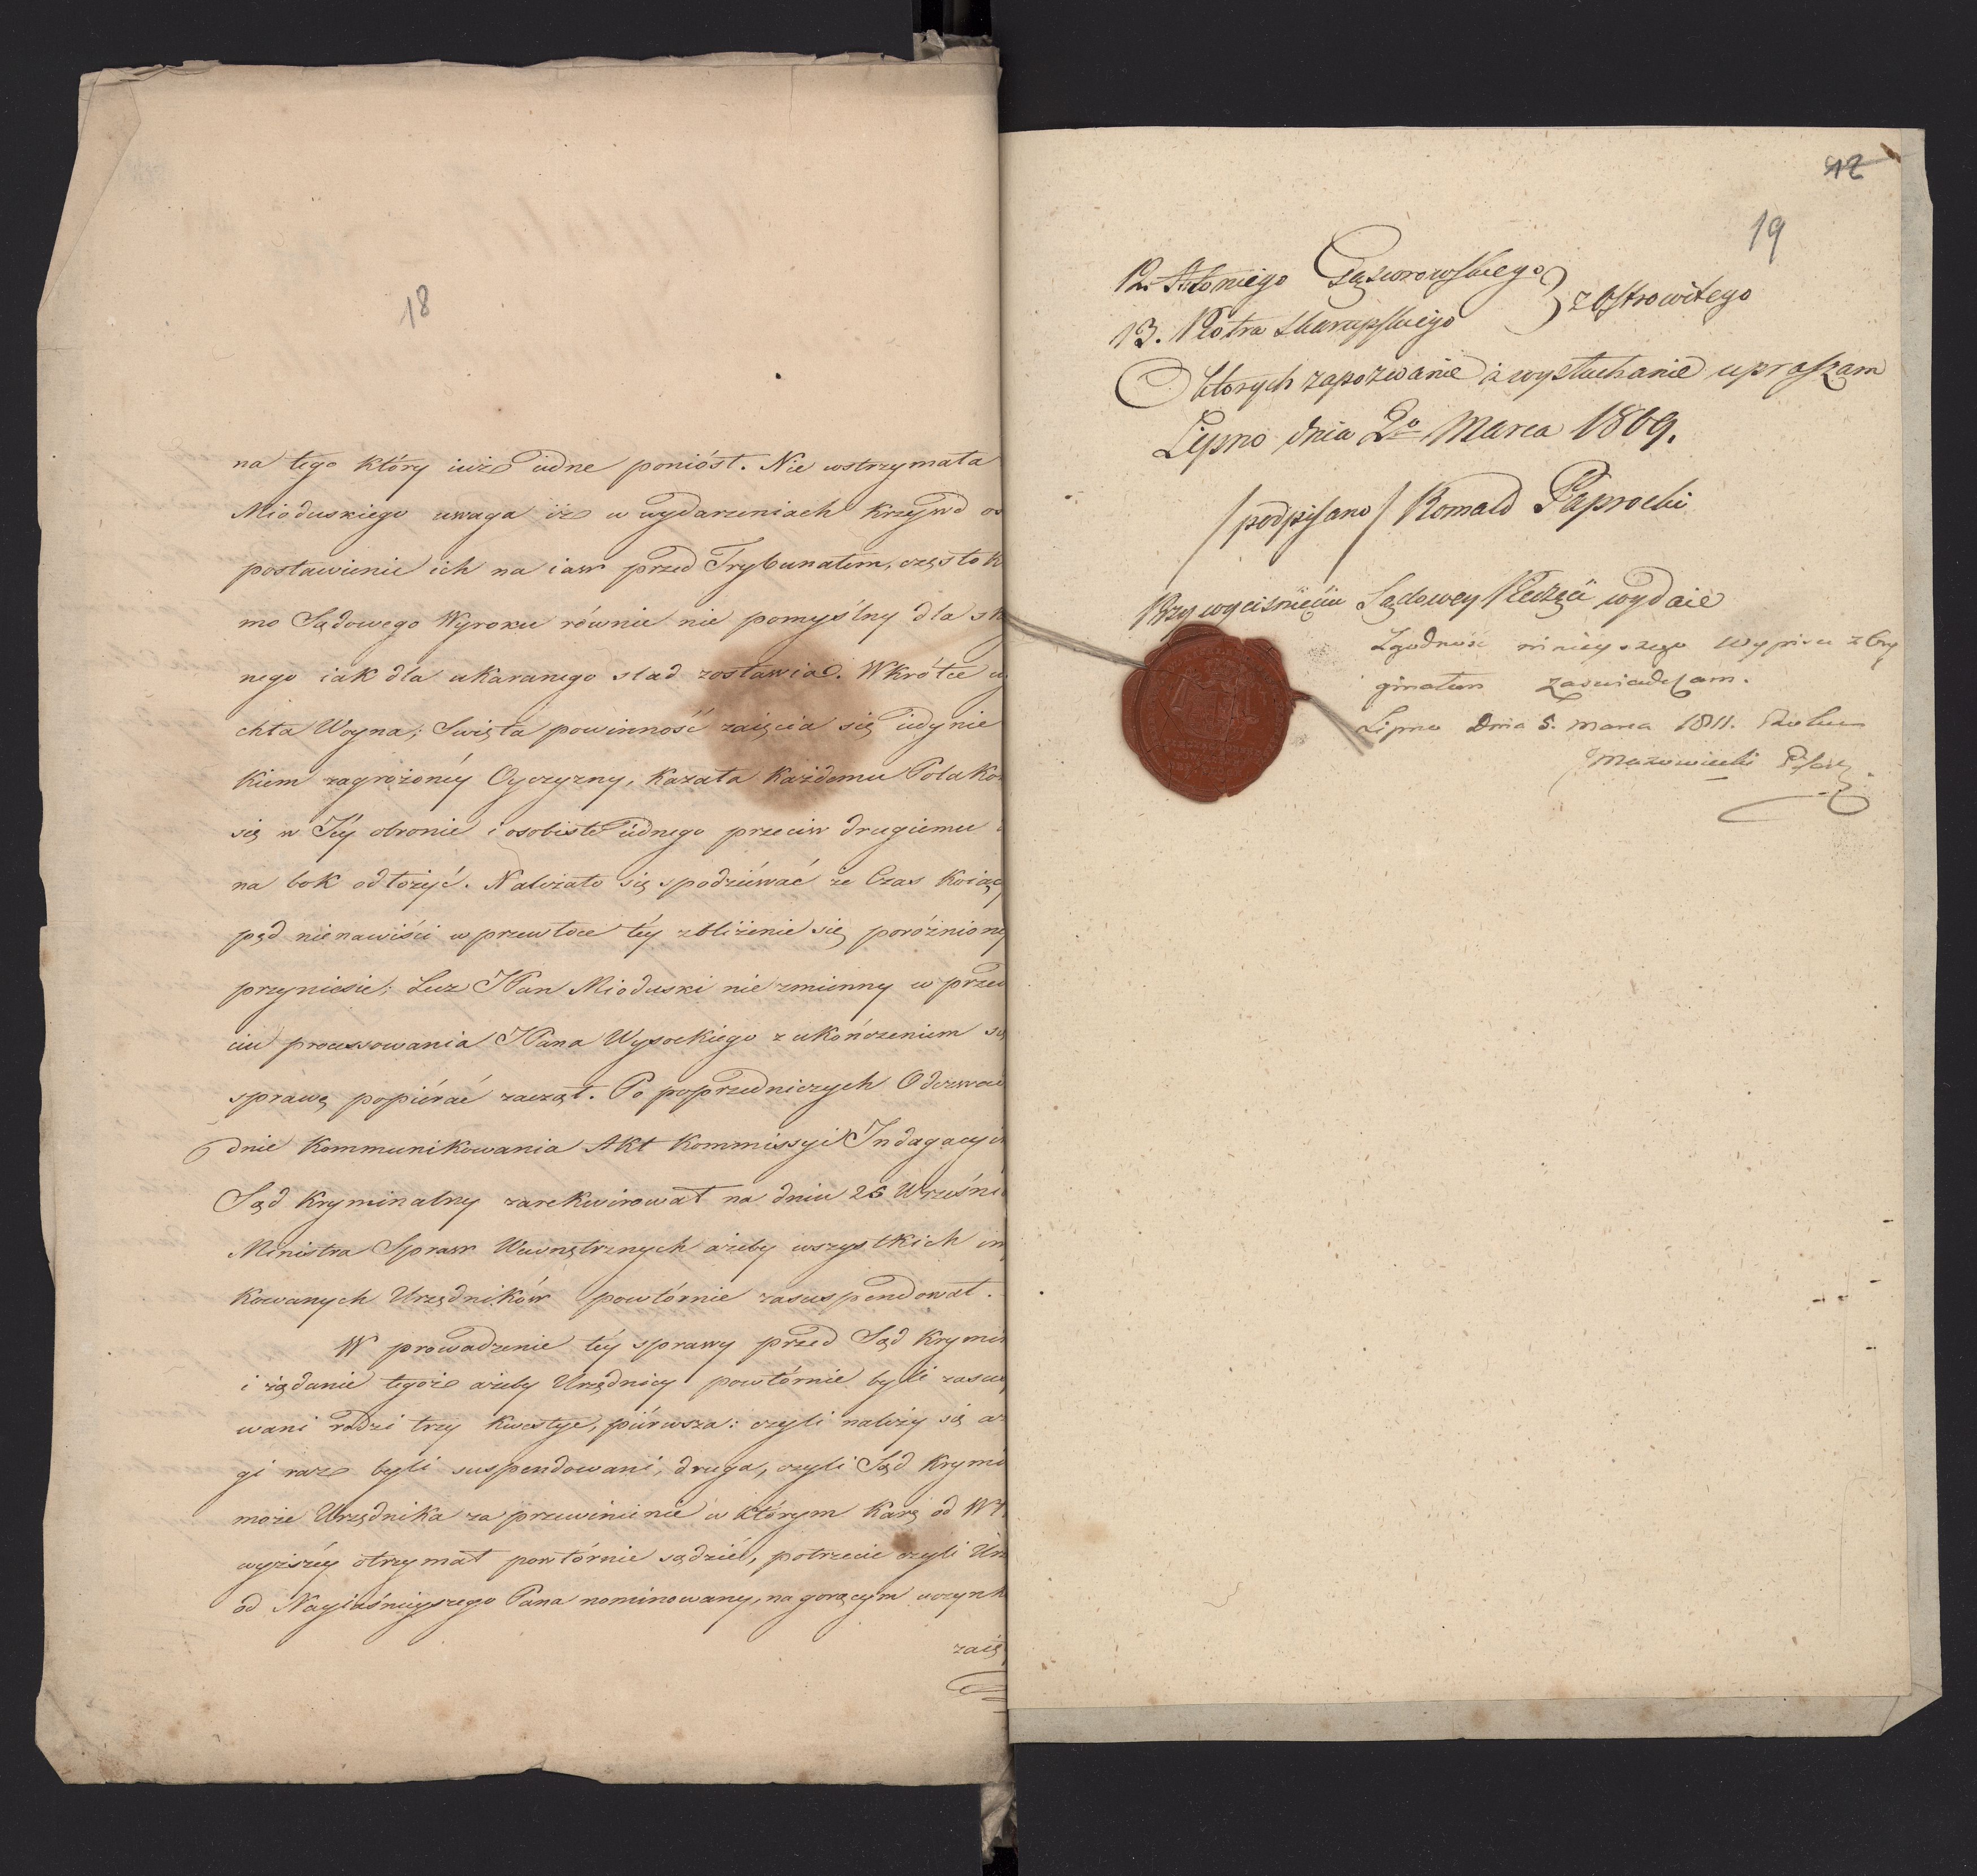 18
na tego który iuż iedne poniósł. Nie wstrzymała
Mioduskiego uwaga iż w wydarzeniach krzywd
postawienie ich na iaw przed Trybunałem, często
mo Sądowego Wyroku równie nie pomyślny dla
nego iak dla ukaranego slad zostawia. Wkrótce
chła Woyna; Swięta powinność zaięcia się iedynie
kiem zagrożonéy Oyczyzny, kazała każdemu Polako
się w Iéy obronie i osobiste iednego przeciw drugiemu
na bok odłożyć. Należało się spodziéwać że Czas koiąc
pęd nienawiści w przewłoce téy zbliżenie się poróżniony
przyniesie; Lecz JPan Mioduski nie zmienny w przed
ciu processowania JPana Wysockiego z ukończeniem
sprawę popiérać zaczął. Po poprzedniczych Odezwa
dnie kommunikowania Akt Kommissyi Indagacyi
Sąd Kryminalny zarekwirował na dniu 25 Wrześni
Ministra Spraw Wewnętrznych ażeby wszystkich
kowanych Urzędników powtórnie zasuspendował.
W prowadzenie téy sprawy przed Sąd Krymi
i żądanie tegoż ażeby Urzędnicy powtórnie byli zasus
wani rodzi trzy kwestye, piérwsza: czyli należy się
gi raz byli suspendowani, druga, czyli Sąd Krymi
może Urzędnika za przewinienie w którym karę od
wyższéy otrzymał powtórnie sądzić, potrzecie czyli Urz
od Nayiaśnieyszego Pana nominowany, na gorącym uczynk
zaię
42
19
12. Antoniego Gąsiorowskiego
13. Piotra Skarupskiego } z Ostrowitego
których zapozwanie i wysłuchanie upraszam
Lipno dnia 2o Marca 1809.
/podpisano/ Romald Paprocki
Przy wyciśnięciu Sądowey Pieczęci wydaie
Zgodność ninieyszego Wypisu z Ory
ginałem zaświadczam.
Lipno Dnia 5. Marca 1811. Roku
Mazowiecki Pisarz